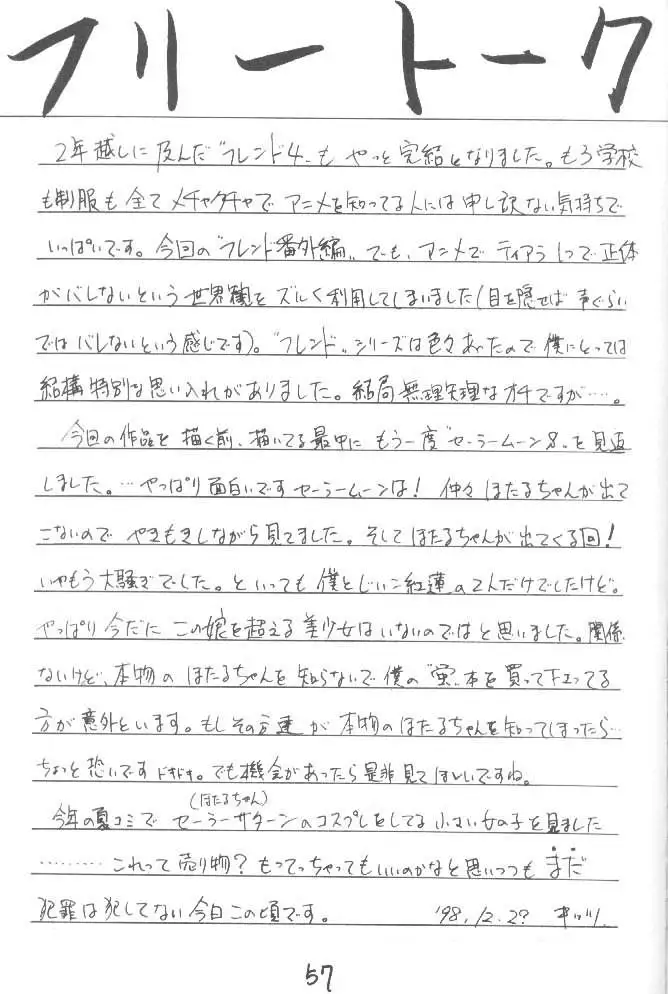 フリートーク
2年越しに及んだ"フレンド4"もやっと完結となりました。もう学校
も制服も全てメチャクチャでアニメを知ってる人には申し訳ない気持ちで
いっぱいです。今回の"フレンド番外編"でも、アニメでティアラ1つで正体
がバレないという世界観をズルく利用してしまいました(目を隠せば声ぐらい
ではバレないという感じです)。"フレンド"シリーズは色々あったので僕にとっては
結構特別な思い入れがありました。結局無理矢理なオチですが……。
今回の作品を描く前、描いてる最中にもう一度"セーラームーンS"を見返
しました。…やっぱり面白いですセーラームーンは!仲々ほたるちゃんが出て
こないのでやきもきしながら見てました。そしてほたるちゃんが出てくる回!
いやもう大騒ぎでした。といっても僕とじいこ紅蓮の2人だけでしたけど。
やっぱり今だにこの娘を超える美少女はいないのではと思いました。関係
ないけど、本物のほたるちゃんを知らないで僕の"蛍"本を買って下さってる
方が意外といます。もしその方達が本物のほたるちゃんを知ってしまったら…
ちょっと恐いですドキドキ。でも機会があったら是非見てほしいですね。
(ほたるちゃん)
今年の夏コミでセーラーサターンのコスプレをしてる小さい女の子を見ました
………これって売り物?もってっちゃってもいいのかなと思いつつもまだ
犯罪は犯してない今日この頃です。 '98.12.27
57